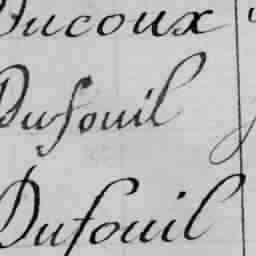 Ducoux
Dufouil
Dufouil